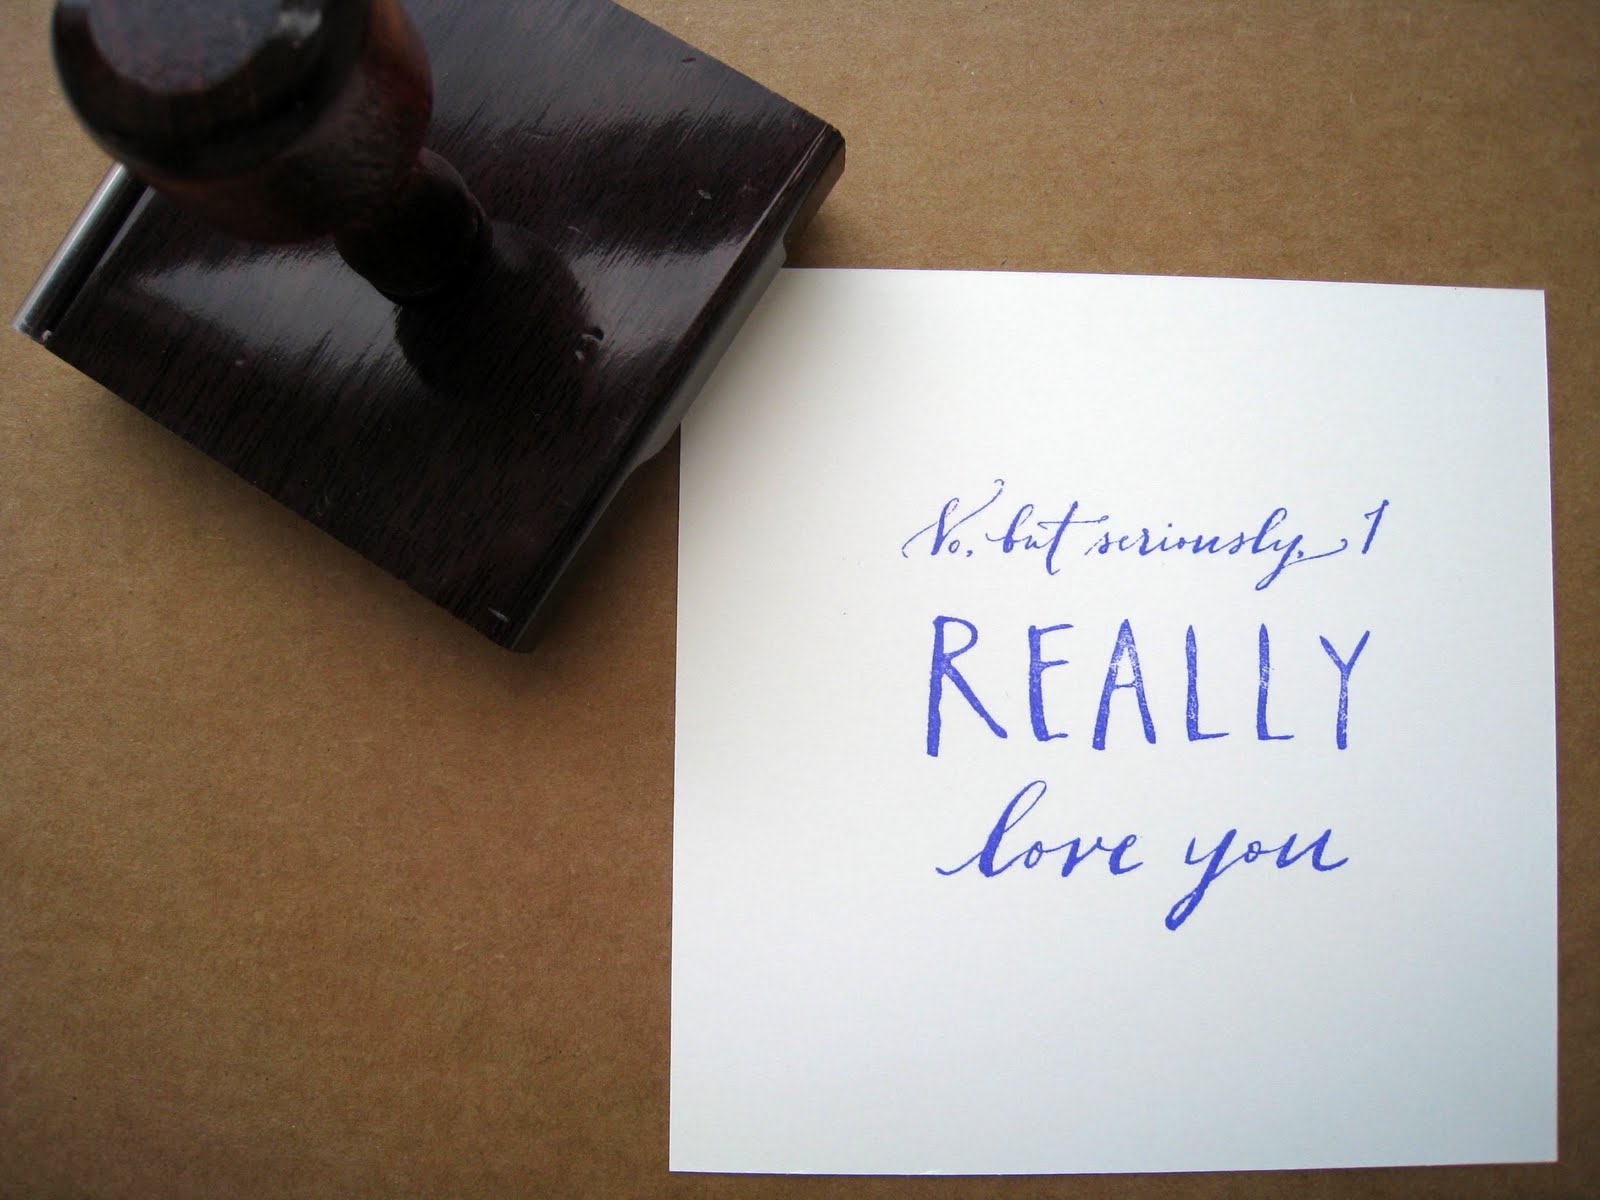 No, but seriously, I
REALLY
love you